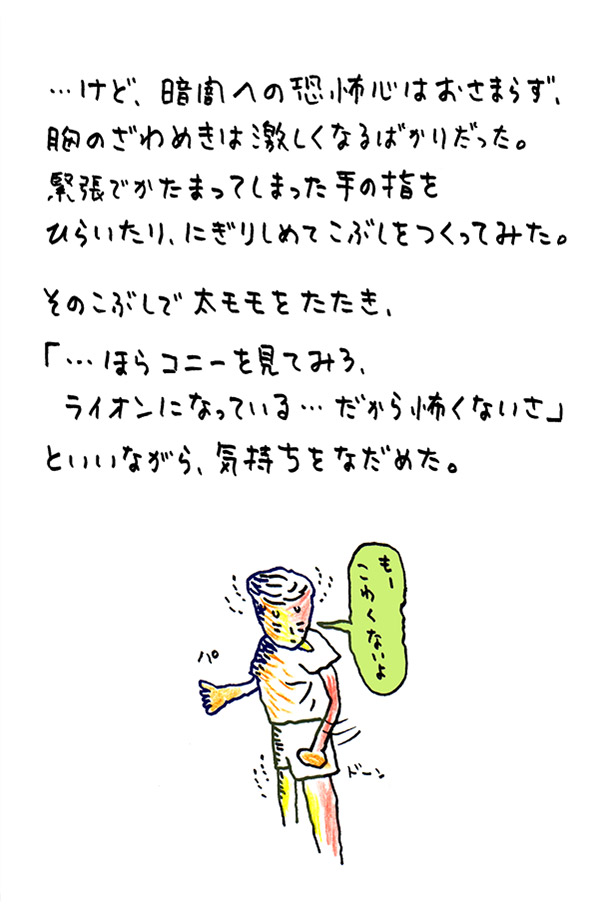 …けど、暗闇への恐怖心はおさまらず、
胸のざわめきは激しくなるばかりだった。
緊張でかたまってしまった手の指を
ひらいたり、にぎりしめてこぶしをつくってみた。
そのこぶしで太モモをたたき、
「…ほらコニーを見てみろ、
ライオンになっている…だから怖くないさ」
といいながら、気持ちをなだめた。
もー
こわくないよ
パ
ドーン